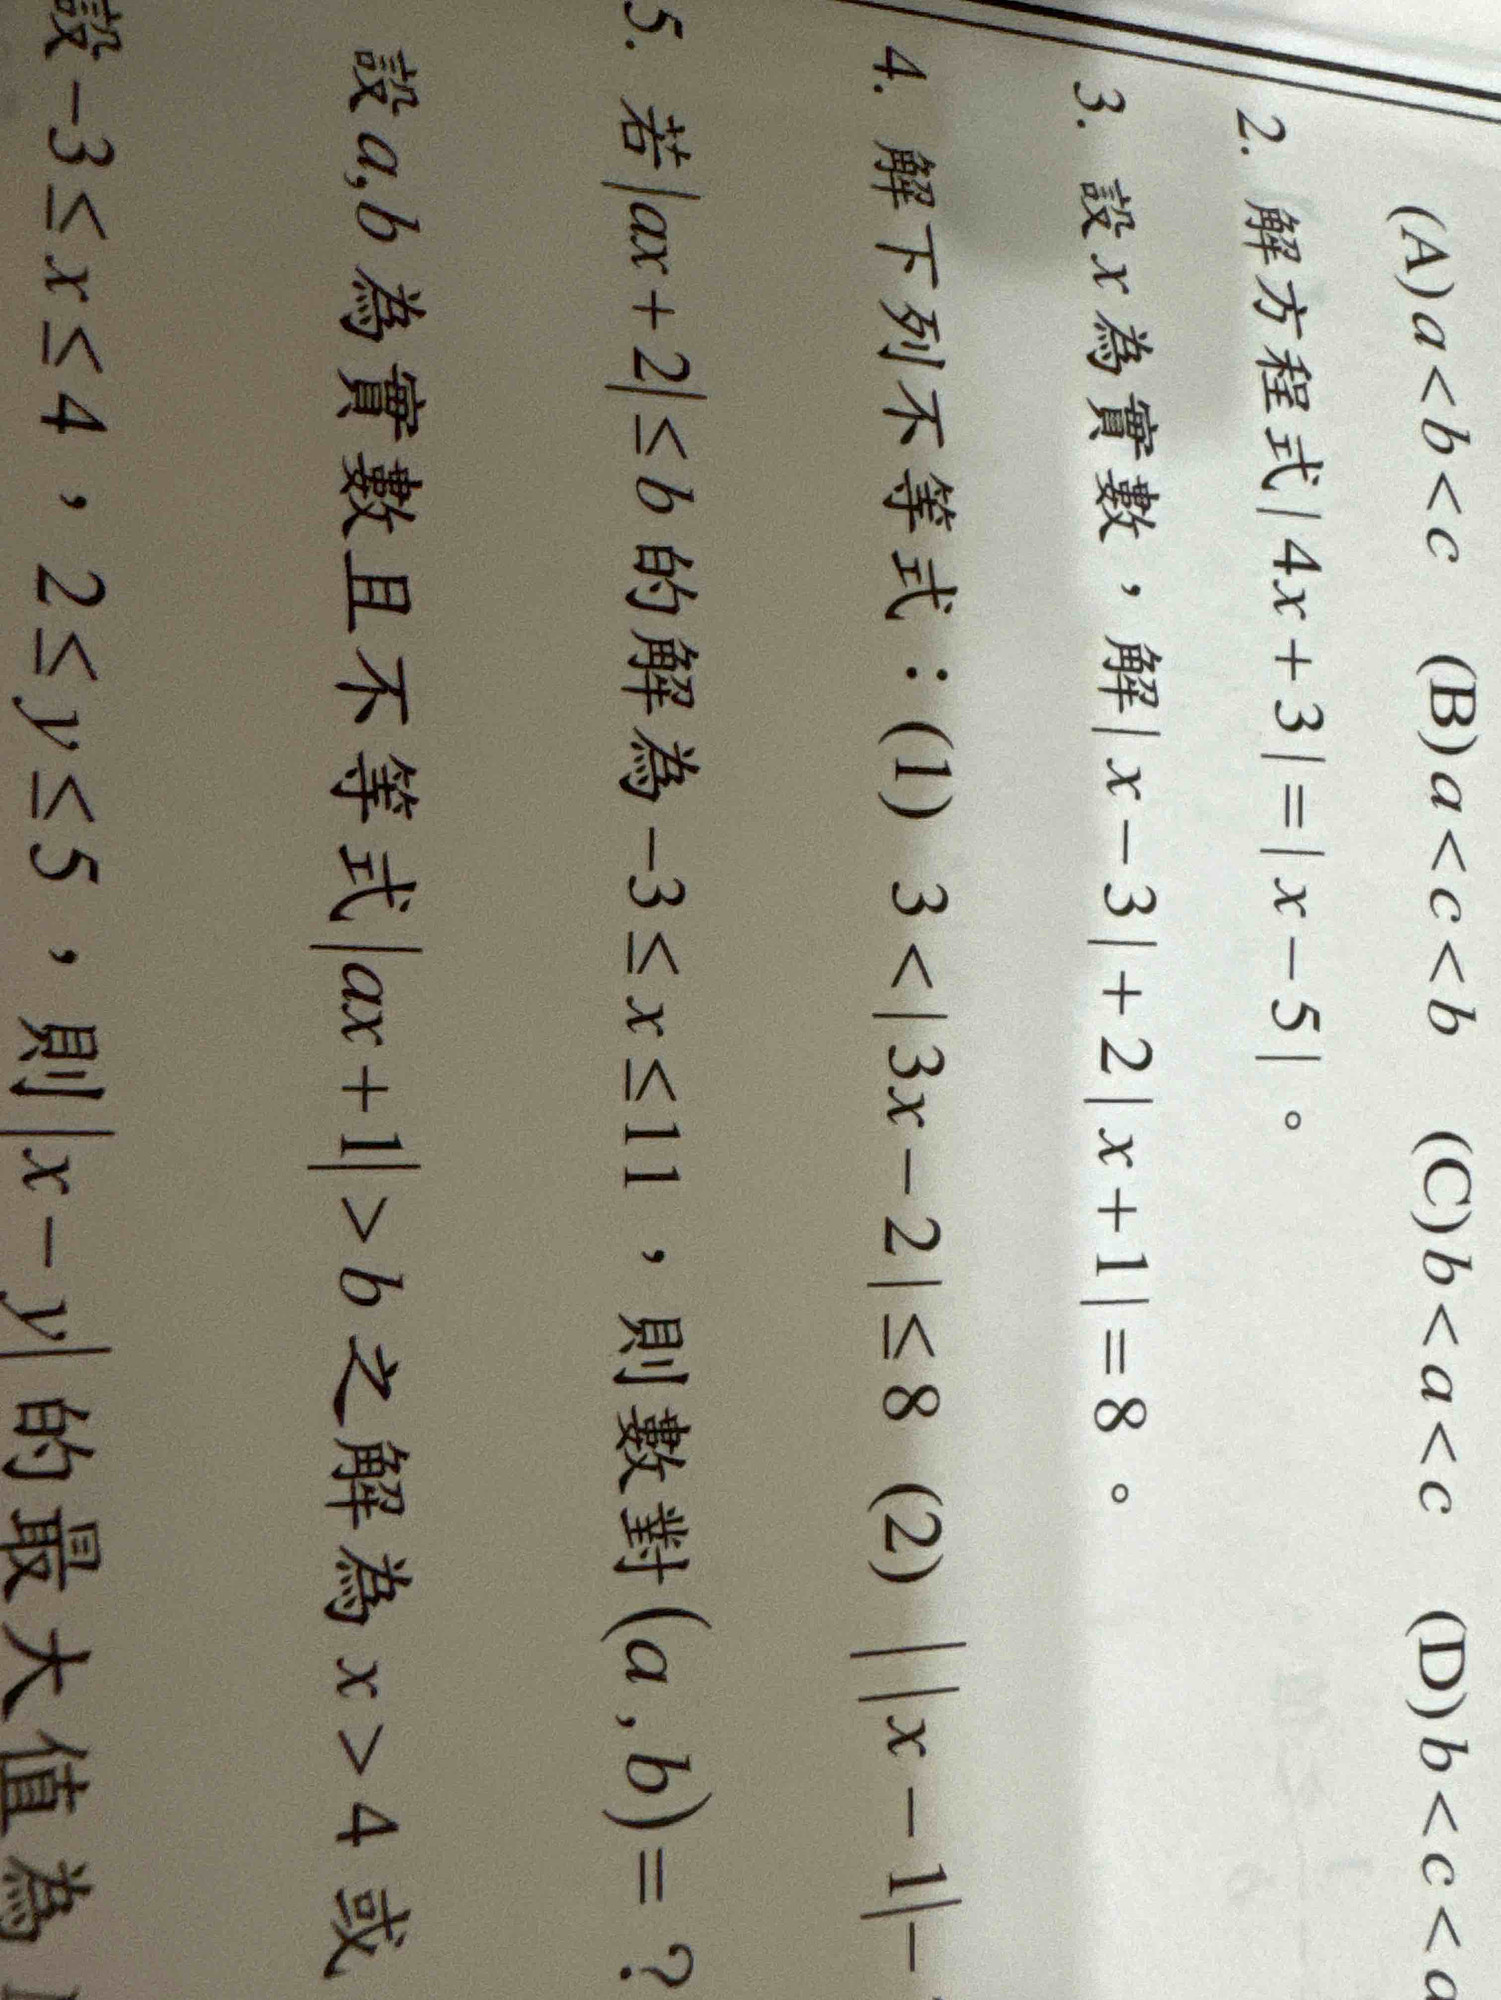 (A) a < b < c (B) a < c < b (C) b < a < c (D) b < c < a
2. 解方程式|4x+3|=|x−5|。
3. 設x為實數，解|x−3|+2|x+1|=8。
4. 解下列不等式：(1) 3<|3x−2|≤8 (2) ||x−1|−
5. 若|ax+2|≤b的解為−3≤x≤11，則數對(a,b)=?
設a,b為實數且不等式|ax+1|>b之解為x>4或
設−3≤x≤4，2≤y≤5，則|x−y|的最大值為